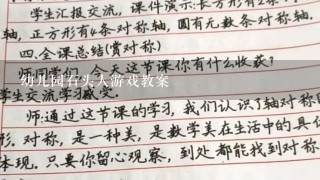 学生汇报交流，课件演示：长方形有2条
轴，正方形有4条对称轴，圆有无数条对称轴．
四.全课总结(赏对称)
今天这节课你有什么收获？
幼儿园石头人游戏教案
学生交流学习感受．
师：通过这节课的学习，我们认识了轴对称
形．对称，是一种美，是数学美在生活中的具
体现．只要你留心观察，到处都能找到对称